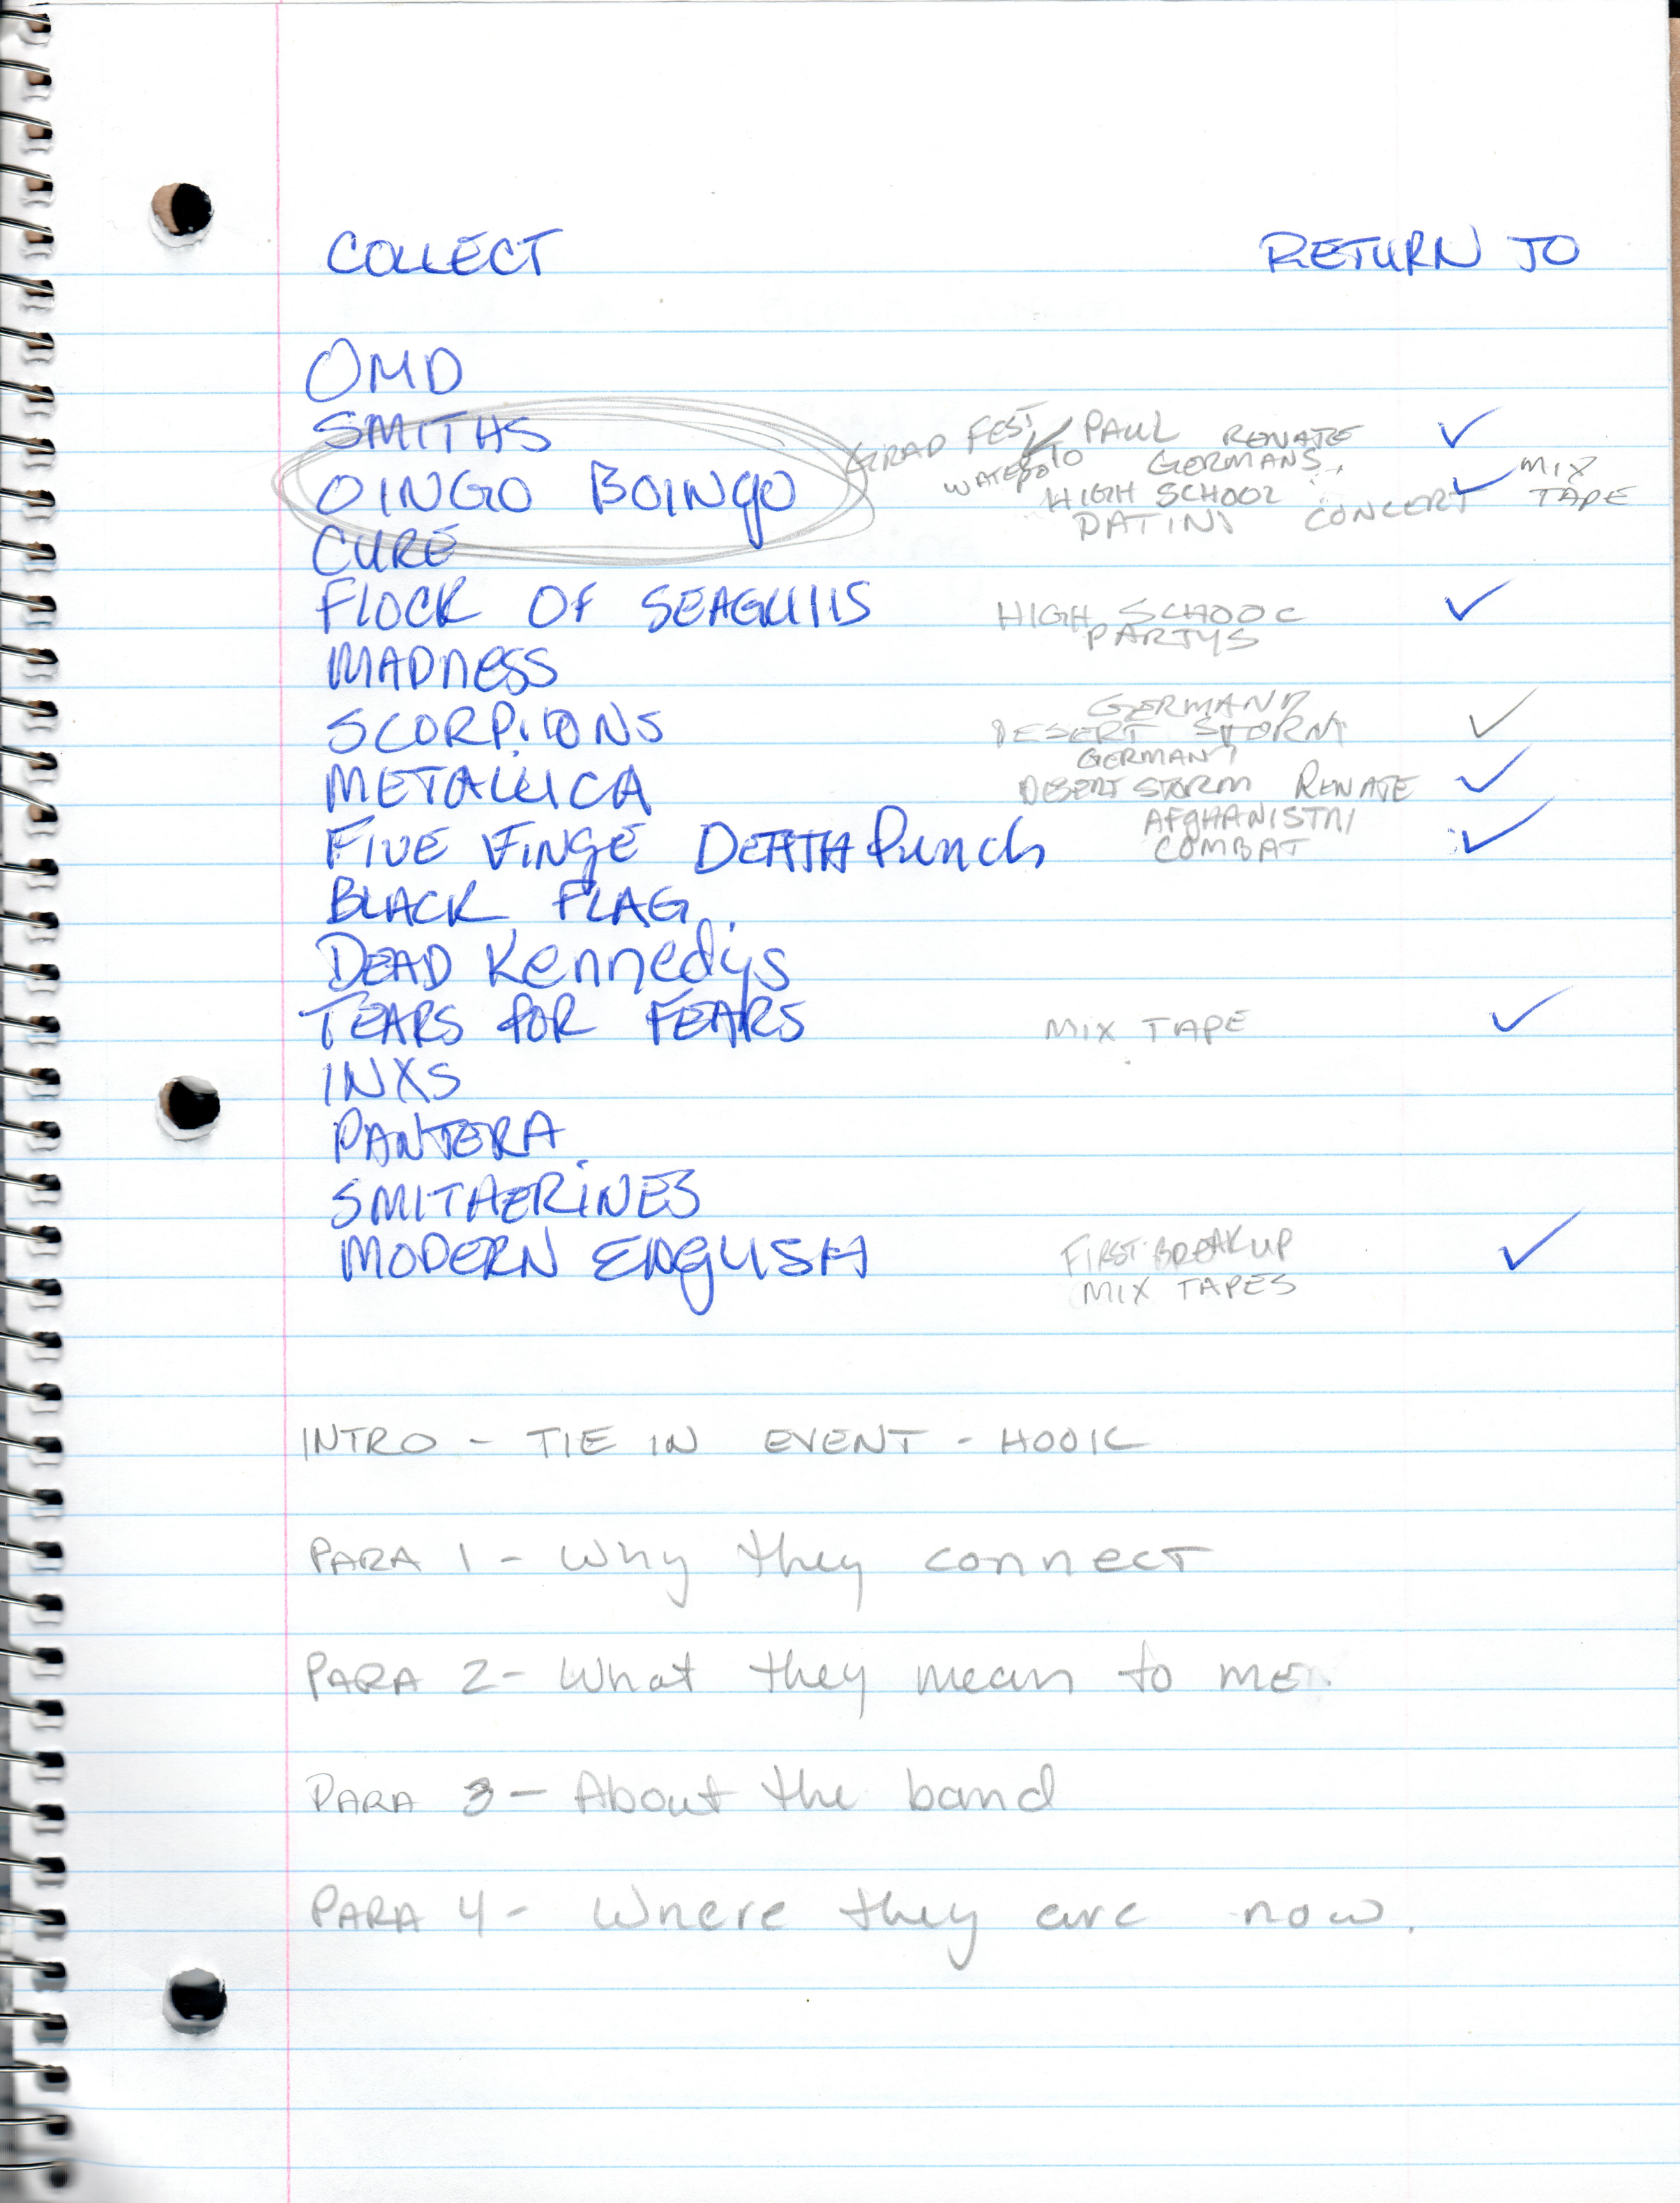 COLLECT RETURN TO
OMD
SMITHS GRAD FEST / PAUL RENATE ✓
WATERPOLO GERMANS
OINGO BOINGO HIGH SCHOOL ✓ MIX TAPE
CONCERT
CURE
FLOCK OF SEAGULLS HIGH SCHOOL ✓
PARTYS
MADNESS
GERMANY
SCORPIONS DESERT STORM ✓
GERMANY
METALLICA DESERT STORM RENATE ✓
AFGHANISTN
FIVE FINGE DEATH Punch COMBAT ✓
BLACK FLAG
DEAD Kennedys
TEARS FOR FEARS MIX TAPE ✓
INXS
PANTERA
SMITHERINES
MODERN ENGLISH FIRST BREAKUP ✓
MIX TAPES
INTRO - TIE IN EVENT - HOOK
PARA 1 - Why they connect
PARA 2 - What they mean to me
PARA 3 - About the band
PARA 4 - Where they are now.